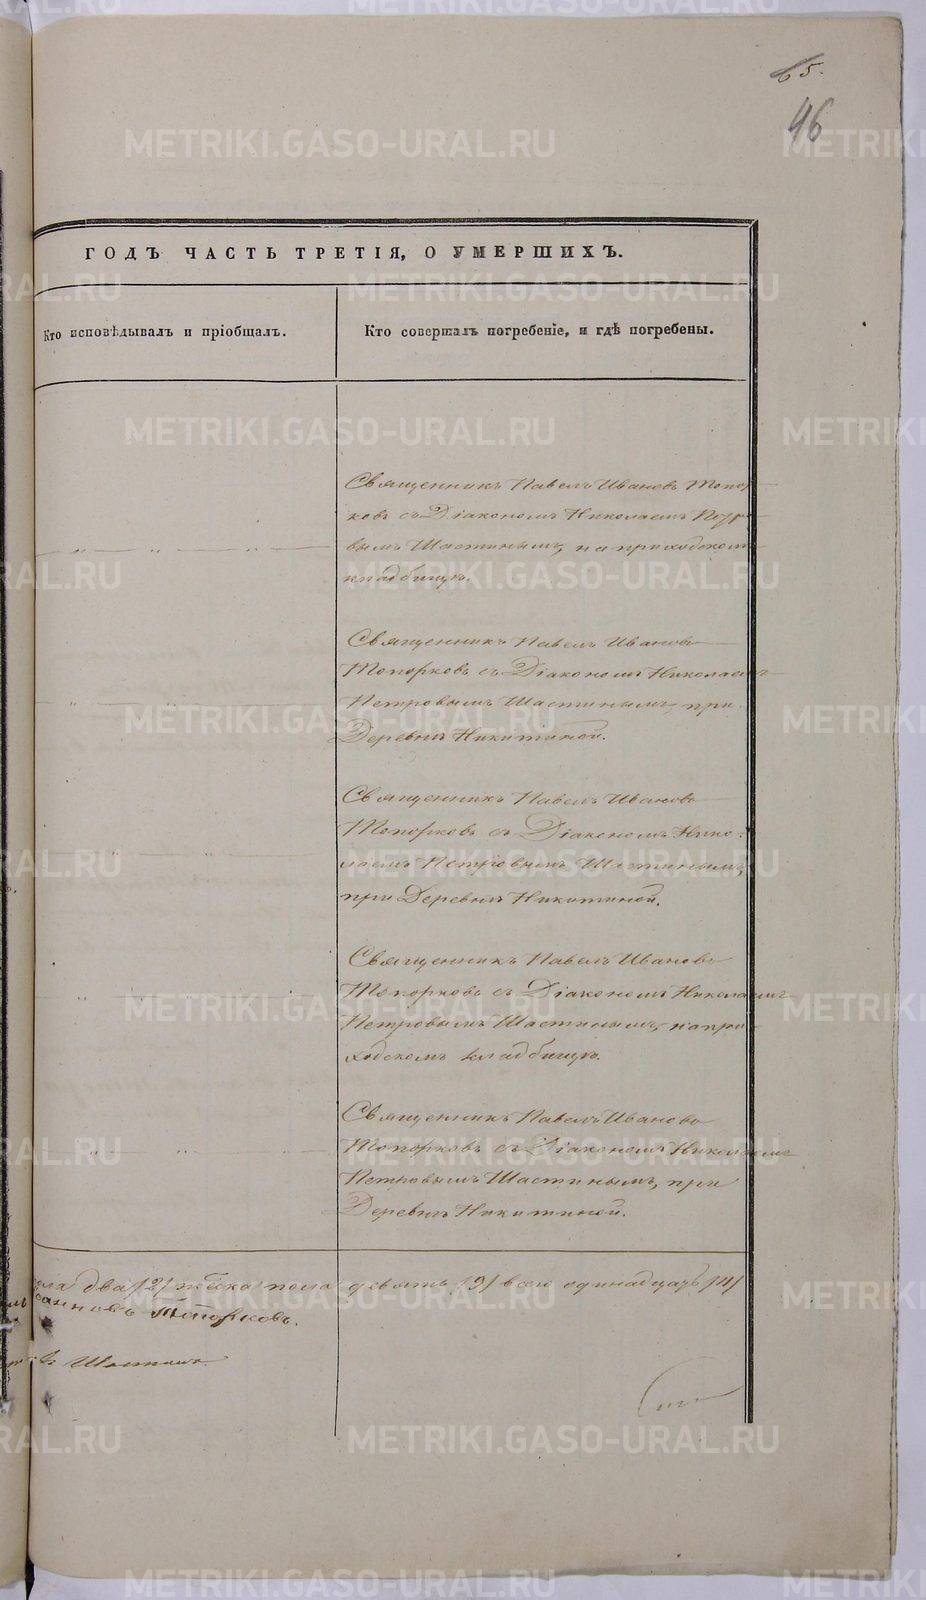 65.
46
ГОДЪ ЧАСТЬ ТРЕТІЯ, О УМЕРШИХЪ.
Кто исповѣдывалъ и пріобщалъ.
Кто совершалъ погребеніе, и гдѣ погребены.
Священникъ Павелъ Ивановъ Топор
ковъ съ Діакономъ Николаемъ Петро
вымъ Шастинымъ, на приходскомъ
кладбищѣ.
Священникъ Павелъ Ивановъ
Топорковъ съ Діакономъ Николаемъ
Петровымъ Шастинымъ, при
Деревнѣ Никитиной.
Священникъ Павелъ Ивановъ
Топорковъ съ Діакономъ Нико-
лаемъ Петровымъ Шастинымъ,
при Деревнѣ Никитиной.
Священникъ Павелъ Ивановъ
Топорковъ съ Діакономъ Николаемъ
Петровымъ Шастинымъ, на при
ходскомъ кладбищѣ.
Священникъ Павелъ Ивановъ
Топорковъ съ Діакономъ Николаемъ
Петровымъ Шастинымъ, при
Деревнѣ Никитиной.
ола два /2/ женска пола девять /9/ всего одинадцать /11/
Топорковъ.
Шастинъ
METRIKI.GASO-URAL.RU